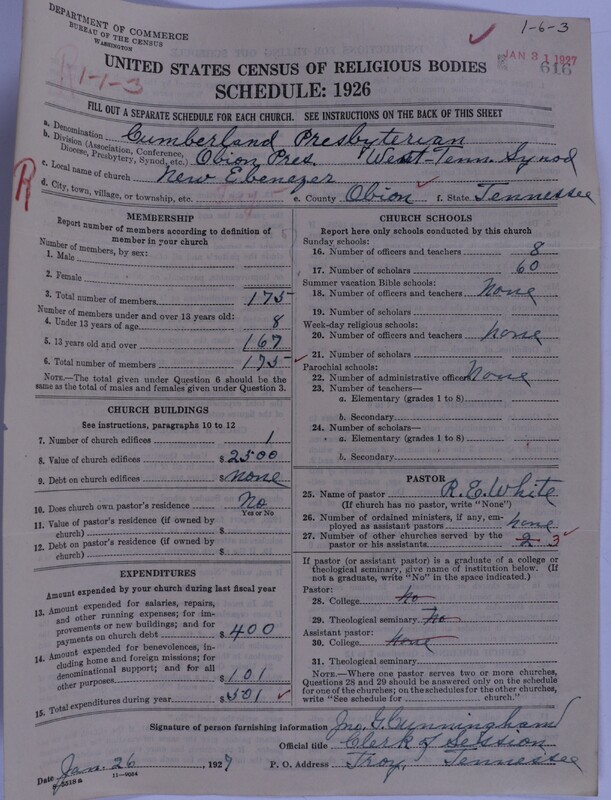 DEPARTMENT OF COMMERCE
BUREAU OF THE CENSUS
WASHINGTON
1-6-3
JAN 31 1927
616
R 1-1-3
UNITED STATES CENSUS OF RELIGIOUS BODIES
SCHEDULE: 1926
FILL OUT A SEPARATE SCHEDULE FOR EACH CHURCH. SEE INSTRUCTIONS ON THE BACK OF THIS SHEET
a. Denomination Cumberland Presbyterian
b. Division (Association, Conference, Diocese, Presbytery, Synod, etc.) Obion Pres. West-Tenn Synod
c. Local name of church New Ebenezer
R
d. City, town, village, or township, etc. e. County Obion f. State Tennessee
MEMBERSHIP
Report number of members according to definition of
member in your church
Number of members, by sex:
1. Male
2. Female
3. Total number of members 175
Number of members under and over 13 years old:
4. Under 13 years of age 8
5. 13 years old and over 167
6. Total number of members 175
NOTE.—The total given under Question 6 should be the
same as the total of males and females given under Question 3.
CHURCH BUILDINGS
See instructions, paragraphs 10 to 12
7. Number of church edifices 1
8. Value of church edifices $ 2500
9. Debt on church edifices $ none
10. Does church own pastor's residence No
Yes or No
11. Value of pastor's residence (if owned by
church) $
12. Debt on pastor's residence (if owned by
church) $
EXPENDITURES
Amount expended by your church during last fiscal year
13. Amount expended for salaries, repairs,
and other running expenses; for im-
provements or new buildings; and for
payments on church debt $ 400
14. Amount expended for benevolences, in-
cluding home and foreign missions; for
denominational support; and for all
other purposes $ 101
15. Total expenditures during year $ 501
CHURCH SCHOOLS
Report here only schools conducted by this church
Sunday schools:
16. Number of officers and teachers 8
17. Number of scholars 60
Summer vacation Bible schools:
18. Number of officers and teachers None
19. Number of scholars
Week-day religious schools:
20. Number of officers and teachers none
21. Number of scholars
Parochial schools:
22. Number of administrative officers None
23. Number of teachers—
a. Elementary (grades 1 to 8)
b. Secondary
24. Number of scholars—
a. Elementary (grades 1 to 8)
b. Secondary
PASTOR
25. Name of pastor R. E. White
(If church has no pastor, write "None")
26. Number of ordained ministers, if any, em-
ployed as assistant pastors none
27. Number of other churches served by the
pastor or his assistants 2 3
If pastor (or assistant pastor) is a graduate of a college or
theological seminary, give name of institution below. (If
not a graduate, write "No" in the space indicated.)
Pastor:
28. College no
29. Theological seminary no
Assistant pastor:
30. College none
31. Theological seminary
NOTE.—Where one pastor serves two or more churches,
Questions 28 and 29 should be answered only on the schedule
for one of the churches; on the schedules for the other churches,
write "See schedule for church."
Signature of person furnishing information Jno. G. Cunningham
Official title Clerk of Session
Date Jan. 26, 1927 P. O. Address Troy, Tennessee
11-8684